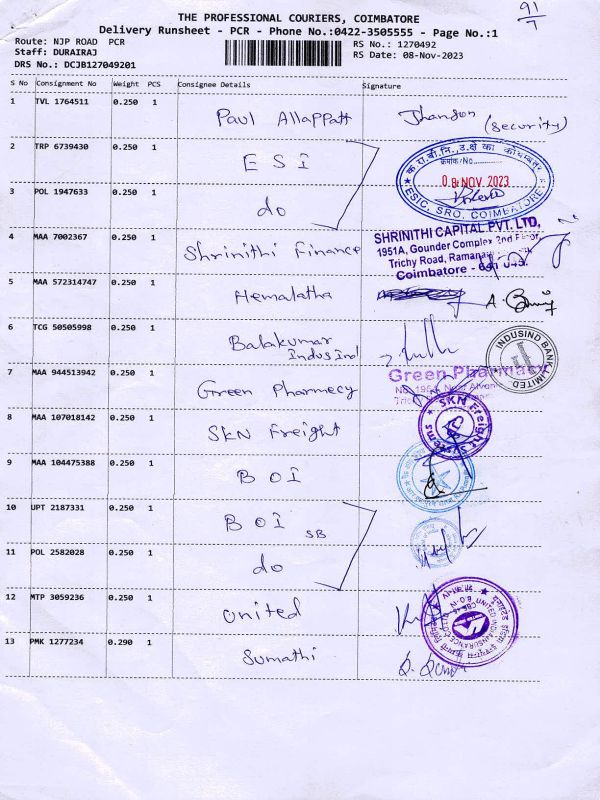 91
7
THE PROFESSIONAL COURIERS, COIMBATORE
Delivery Runsheet - PCR - Phone No.:0422-3505555 - Page No.:1
Route: NJP ROAD PCR
RS No.: 1270492
Staff: DURAIRAJ
RS Date: 08-Nov-2023
DRS No.: DCJB127049201
S No Consignment No Weight PCS Consignee Details Signature
1 TVL 1764511 0.250 1 Paul Allappatt (Security)
2 TRP 6739430 0.250 1 ESI
08 NOV 2023
ESIC, SRO, COIMBATORE
3 POL 1947633 0.250 1 do
4 MAA 7002367 0.250 1 Shrinithi Finance
SHRINITHI CAPITAL PVT. LTD,
1951A, Gounder Complex 2nd Floor,
Trichy Road,
Coimbatore - 641 045.
5 MAA 572314747 0.250 1 Hemalatha
6 TCG 50505998 0.250 1 Balakumar
IndusInd
INDUSIND BANK LIMITED
7 MAA 944513942 0.250 1 Green Pharmecy
Green Pharmacy
8 MAA 107018142 0.250 1 SKN Freight
SKN Freight Systems
9 MAA 104475388 0.250 1 BOI
10 UPT 2187331 0.250 1 BOI SB
11 POL 2582028 0.250 1 do
12 MTP 3059236 0.250 1 United
13 PMK 1277234 0.290 1 Sumathi